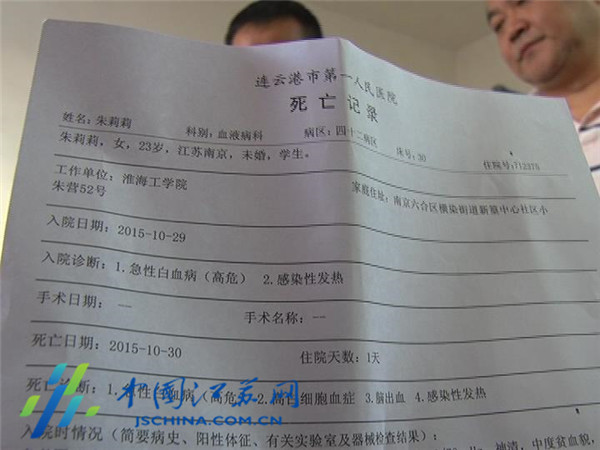 连云港市第一人民医院
死亡记录
姓名：朱莉莉 科别：血液病科 病区：四十二病区 床号：30 住院号：712275
朱莉莉，女，23岁，江苏南京，未婚，学生。
工作单位：淮海工学院 家庭住址：南京六合区横染街道新篁中心社区小
朱营52号
入院日期：2015-10-29
入院诊断：1.急性白血病（高危） 2.感染性发热
手术日期： — 手术名称：--
死亡日期：2015-10-30 住院天数：1天
死亡诊断：1.急性白血病（高危） 2.高白细胞血症 3.脑出血 4.感染性发热
入院时情况（简要病史、阳性体征、有关实验室及器械检查结果）：
神清，中度贫血貌，
中国江苏网
JSCHINA.COM.CN